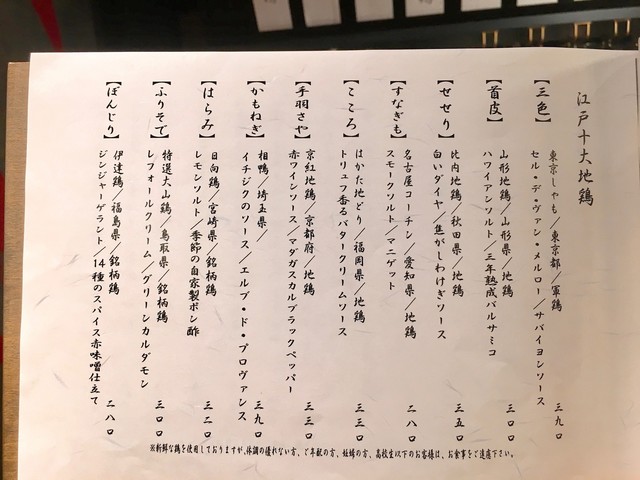 江戸十大地鶏
【三色】
東京しゃも／東京都／軍鶏
セル・デ・ヴァン・メルロー／サバイヨンソース
三九〇
【首皮】
山形地鶏／山形県／地鶏
ハワイアンソルト／三年熟成バルサミコ
三〇〇
【せせり】
比内地鶏／秋田県／地鶏
白いダイヤ／焦がしわけぎソース
三五〇
【すなぎも】
名古屋コーチン／愛知県／地鶏
スモークソルト／マニゲット
二八〇
【こころ】
はかた地どり／福岡県／地鶏
トリュフ香るバタークリームソース
三三〇
【手羽さや】
京紅地鶏／京都府／地鶏
赤ワインソース／マダガスカルブラックペッパー
三三〇
【かもねぎ】
相鴨／埼玉県／
イチジクのソース／エルブ・ド・プロヴァンス
三九〇
【はらみ】
日向鶏／宮崎県／銘柄鶏
レモンソルト／季節の自家製ポン酢
三二〇
【ふりそで】
特選大山鶏／鳥取県／銘柄鶏
レフォールクリーム／グリーンカルダモン
三〇〇
【ぼんじり】
伊達鶏／福島県／銘柄鶏
ジンジャーゲラント／14種のスパイス赤味噌仕立て
二八〇
※新鮮な鶏を使用しておりますが、体調の優れない方、ご年配の方、妊婦の方、高校生以下のお客様は、お食事をご遠慮下さい。